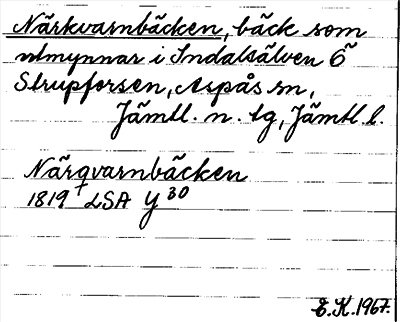 Närkvarnbäcken, bäck som
utmynnar i Indalsälven Ö
Strupforsen, Aspås sn,
Jämtl. n. tg, Jämtl. l.
Närqvarnbäcken
1819 LSA Y 30
E. K. 1967.